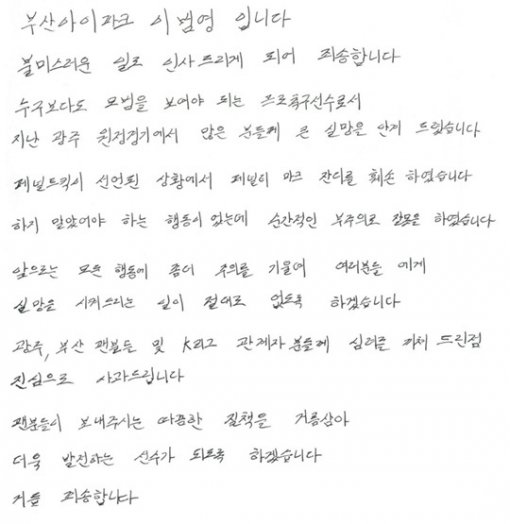 부산아이파크 이범영 입니다
불미스러운 일로 인사드리게 되어 죄송합니다
누구보다도 모범을 보여야 되는 프로축구선수로서
지난 광주 원정경기에서 많은 분들께 큰 실망을 안겨 드렸습니다
페널트킥이 선언된 상황에서 페널티 마크 잔디를 훼손 하였습니다
하지 말았어야 하는 행동이 었는데 순간적인 부주의로 잘못을 하였습니다
앞으로는 모든 행동에 좀더 주의를 기울여 여러분들 에게
실망을 시켜드리는 일이 절대로 없도록 하겠습니다
광주, 부산 팬분들 및 K리그 관계자 분들께 심려를 끼쳐 드린점
진심으로 사과드립니다
팬분들이 보내주시는 따끔한 질책을 거름삼아
더욱 발전하는 선수가 되도록 하겠습니다
거듭 죄송합니다